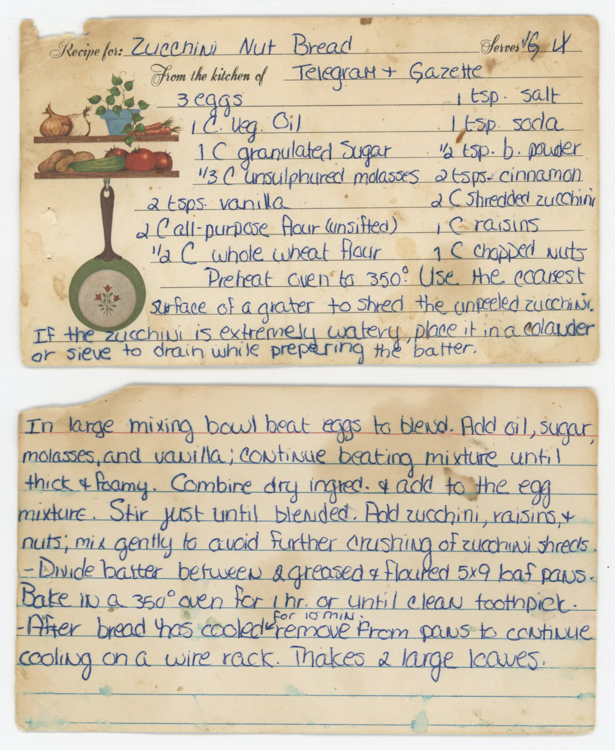 Recipe for: Zucchini Nut Bread Serves
From the kitchen of Telegram + Gazette
3 eggs 1 tsp. salt
1 C. Veg. Oil 1 tsp. soda
1 C granulated Sugar 1/2 tsp. b. powder
1/3 C unsulphured molasses 2 tsps. cinnamon
2 tsps. vanilla 2 C shredded zucchini
2 C all-purpose flour (unsifted) 1 C raisins
1/2 C whole wheat flour 1 C chopped nuts
Preheat oven to 350°. Use the coarest
surface of a grater to shred the unpeeled zucchini.
If the zucchini is extremely watery, place it in a colander
or sieve to drain while prepering the batter.
In large mixing bowl beat eggs to blend. Add oil, sugar,
molasses, and vanilla; continue beating mixture until
thick & foamy. Combine dry ingred. & add to the egg
mixture. Stir just until blended. Add zucchini, raisins, +
nuts; mix gently to avoid further crushing of zucchini shreds.
- Divide batter between 2 greased & floured 5x9 loaf pans.
Bake in a 350° oven for 1 hr. or until clean toothpick.
for 15 min.
- After bread has cooled remove from pans to continue
cooling on a wire rack. Makes 2 large loaves.